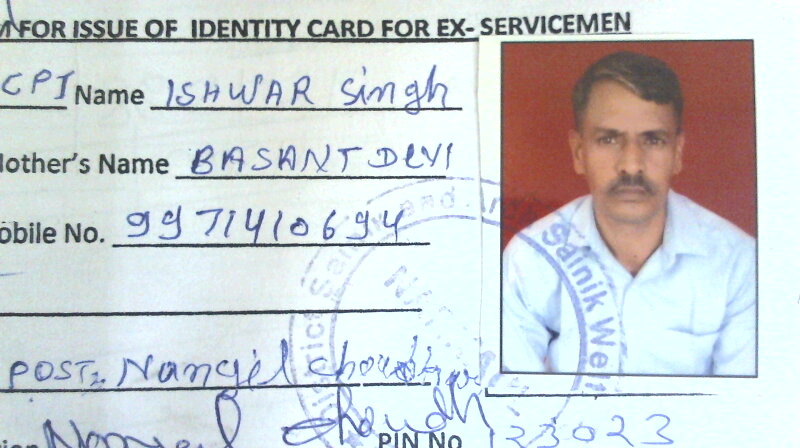 FOR ISSUE OF IDENTITY CARD FOR EX- SERVICEMEN
CPI Name ISHWAR Singh
Mother's Name BASANT DEVI
obile No. 9971410694
POST: Nangal Choudhary
Choudh PIN No 123023
District Sainik and Sainik Welf